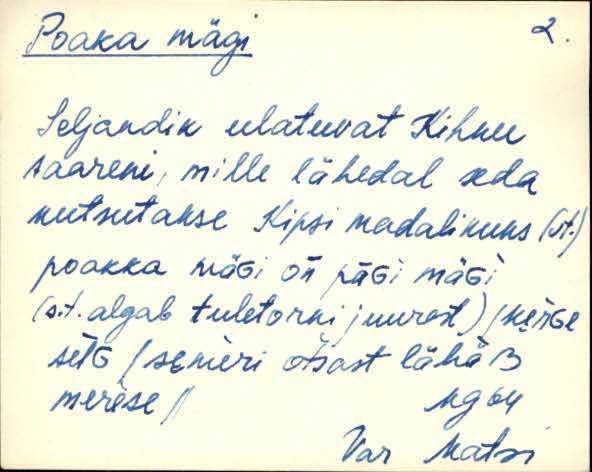 Poaka mägi 2.
Seljandik ulatuvat Kihnu
saareni, mille lähedal seda
kutsutakse Kipsi madalikuks (s.t.)
poakka mäGi on pāGi mäGi
(s.t. algab tuletorni juurest) / kerGe
selG / semeri otsast lähäB
merese //
MG 64
Var Matsi